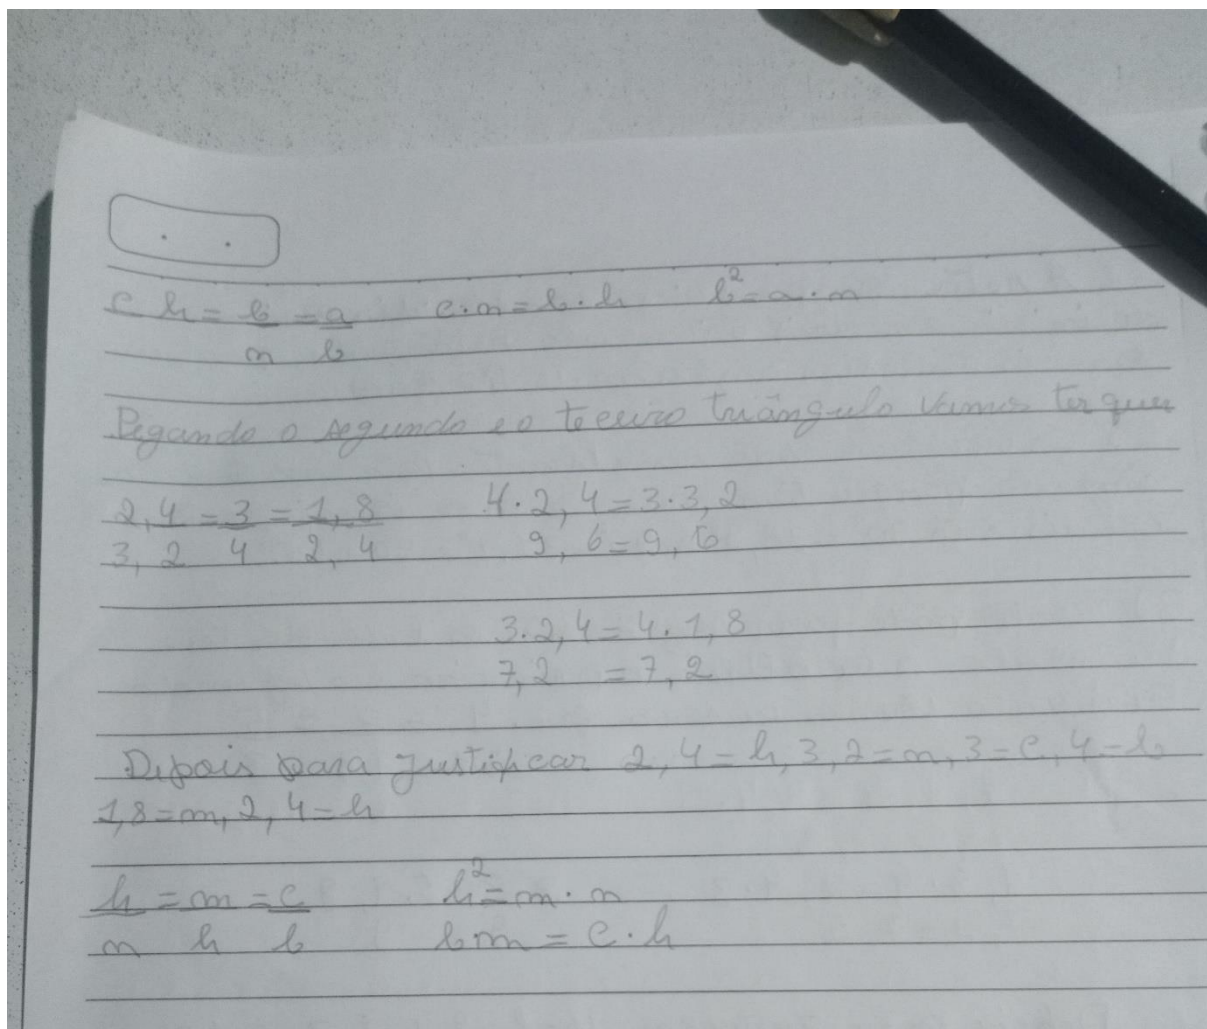 c h = b = a c·n = b·h b² = a·n
n b
Pegando o segundo e o teceiro triângulo vamos ter que
2,4 = 3 = 1,8 4·2,4 = 3·3,2
3,2 4 2,4 9,6 = 9,6
3·2,4 = 4·1,8
7,2 = 7,2
Depois para justificar 2,4 = h, 3,2 = n, 3 = c, 4 = b
1,8 = m, 2,4 = h
h = m = c h² = m·n
n h b bm = c·h